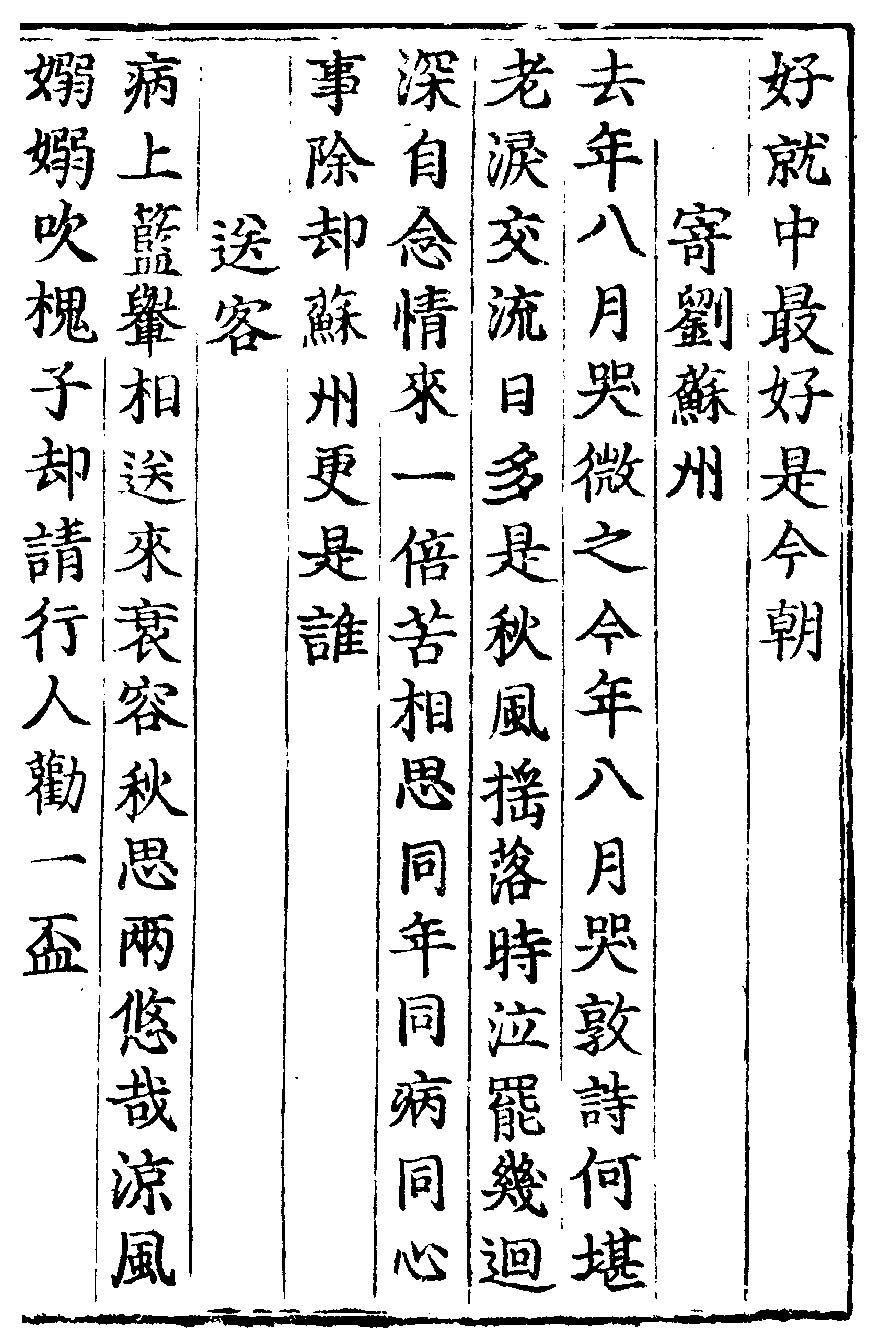 好就中最好是今朝
寄劉蘇州
去年八月哭微之今年八月哭敦詩何堪
老淚交流日多是秋風揺落時泣罷幾迴
深自念情來一倍苦相思同年同病同心
事除却蘇州更是誰
送客
病上籃轝相送來衰容秋思兩悠哉涼風
嫋嫋吹槐子却請行人勸一盃